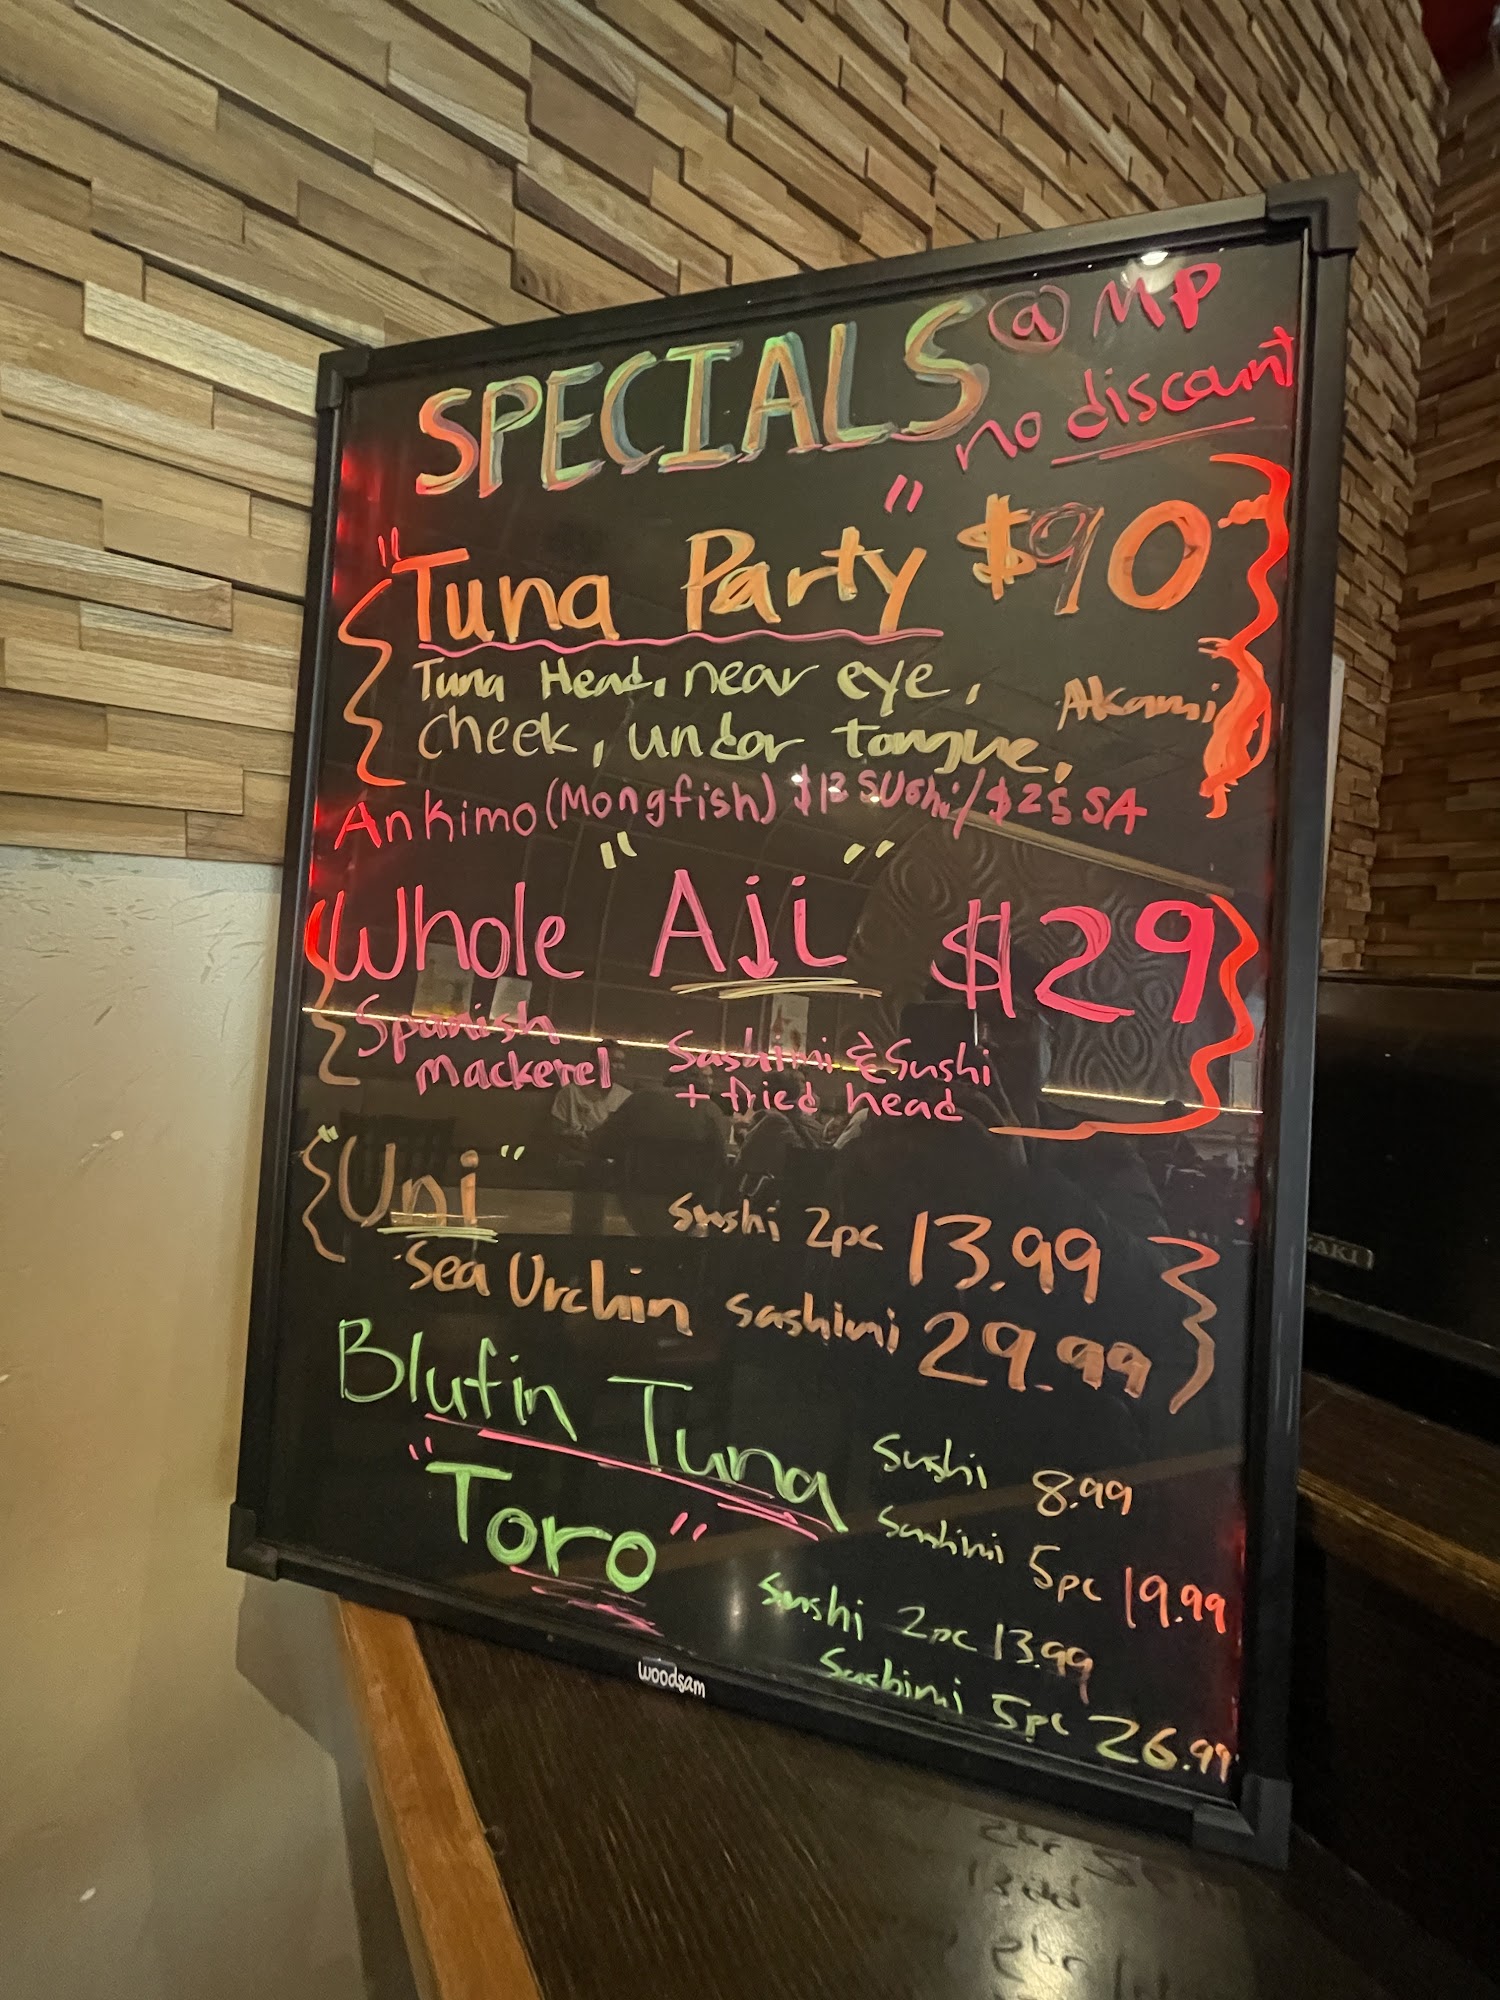 SPECIALS @ MP
no discount
"Tuna Party" $90
Tuna Head, near eye,
cheek, under tongue, Akami
Ankimo (Mongfish) $12 SUshi / $25 SA
Whole "Aji" $29
Spanish
mackerel
Sashimi & Sushi
+ fried head
"Uni"
Sea Urchin
Sushi 2pc 13.99
Sashimi 29.99
Blufin Tuna
Sushi 8.99
Sashimi 5pc 19.99
"Toro"
Sushi 2pc 13.99
Sashimi 5pc 26.99
woodsam